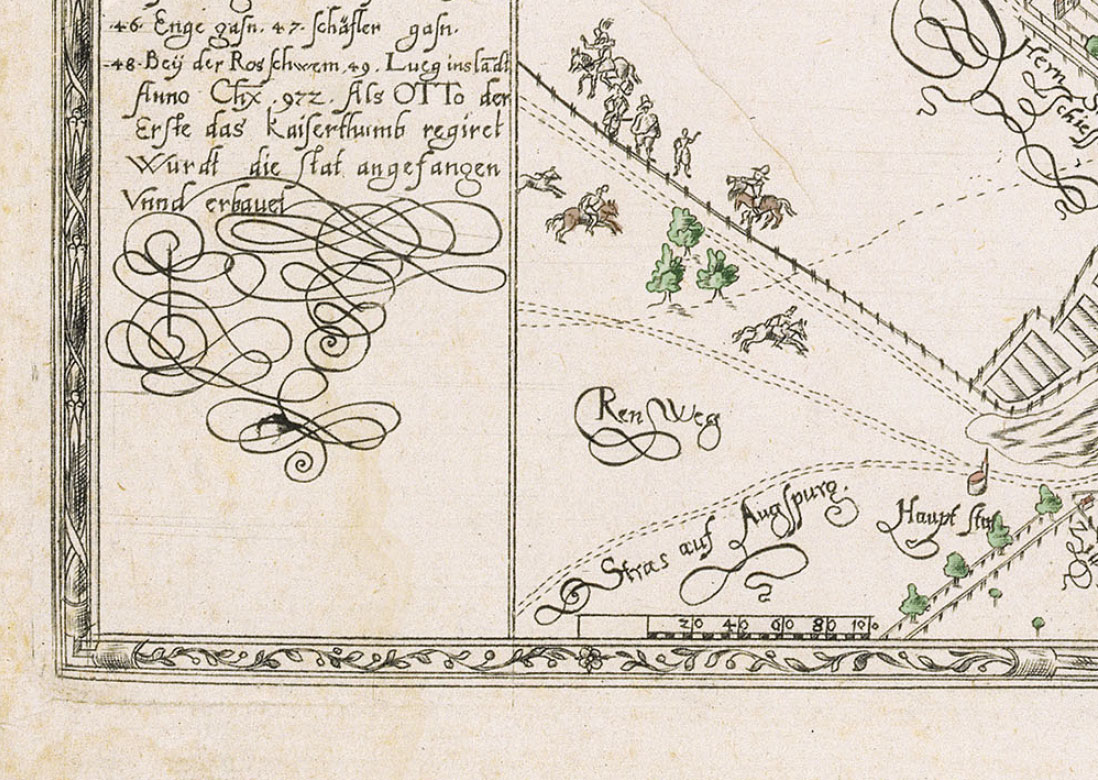 46. Enge gasn. 47. schäfler gasn.
48. Beÿ der Ros schwem, 49. Lueg ins lādt
Anno Chx. 972. Als OTTo der
Erste das kaiserthumb regiret
Wurdt die stat angefangen
Vnnd erbauet
Hern
schies
Ren Weg
Stras auf Augspurg.
Haupt stat
20 40 60 80 100